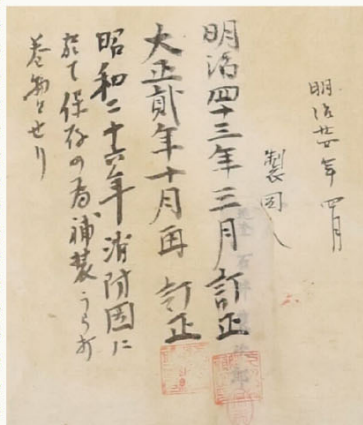 明治廿年四月
製図人
明治四十三年三月訂正
大正貳年十月再訂正
昭和二十六年消防団に
於て保存の為補装うら打
巻物とせり